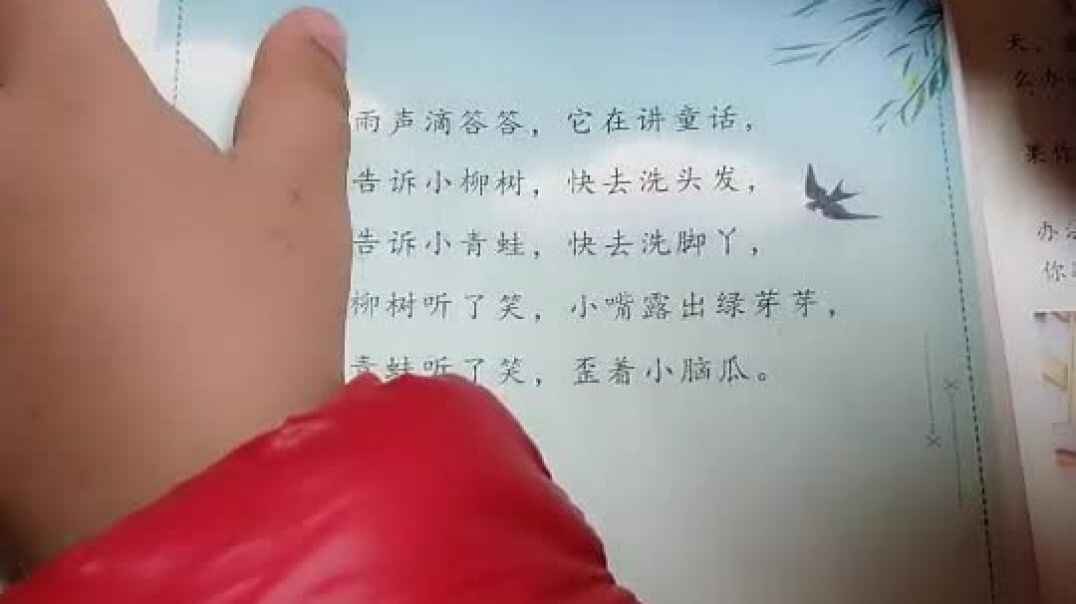 雨声滴答答，它在讲童话，
告诉小柳树，快去洗头发，
告诉小青蛙，快去洗脚丫，
柳树听了笑，小嘴露出绿芽芽，
青蛙听了笑，歪着小脑瓜。
天，
么办
果你
办法
你